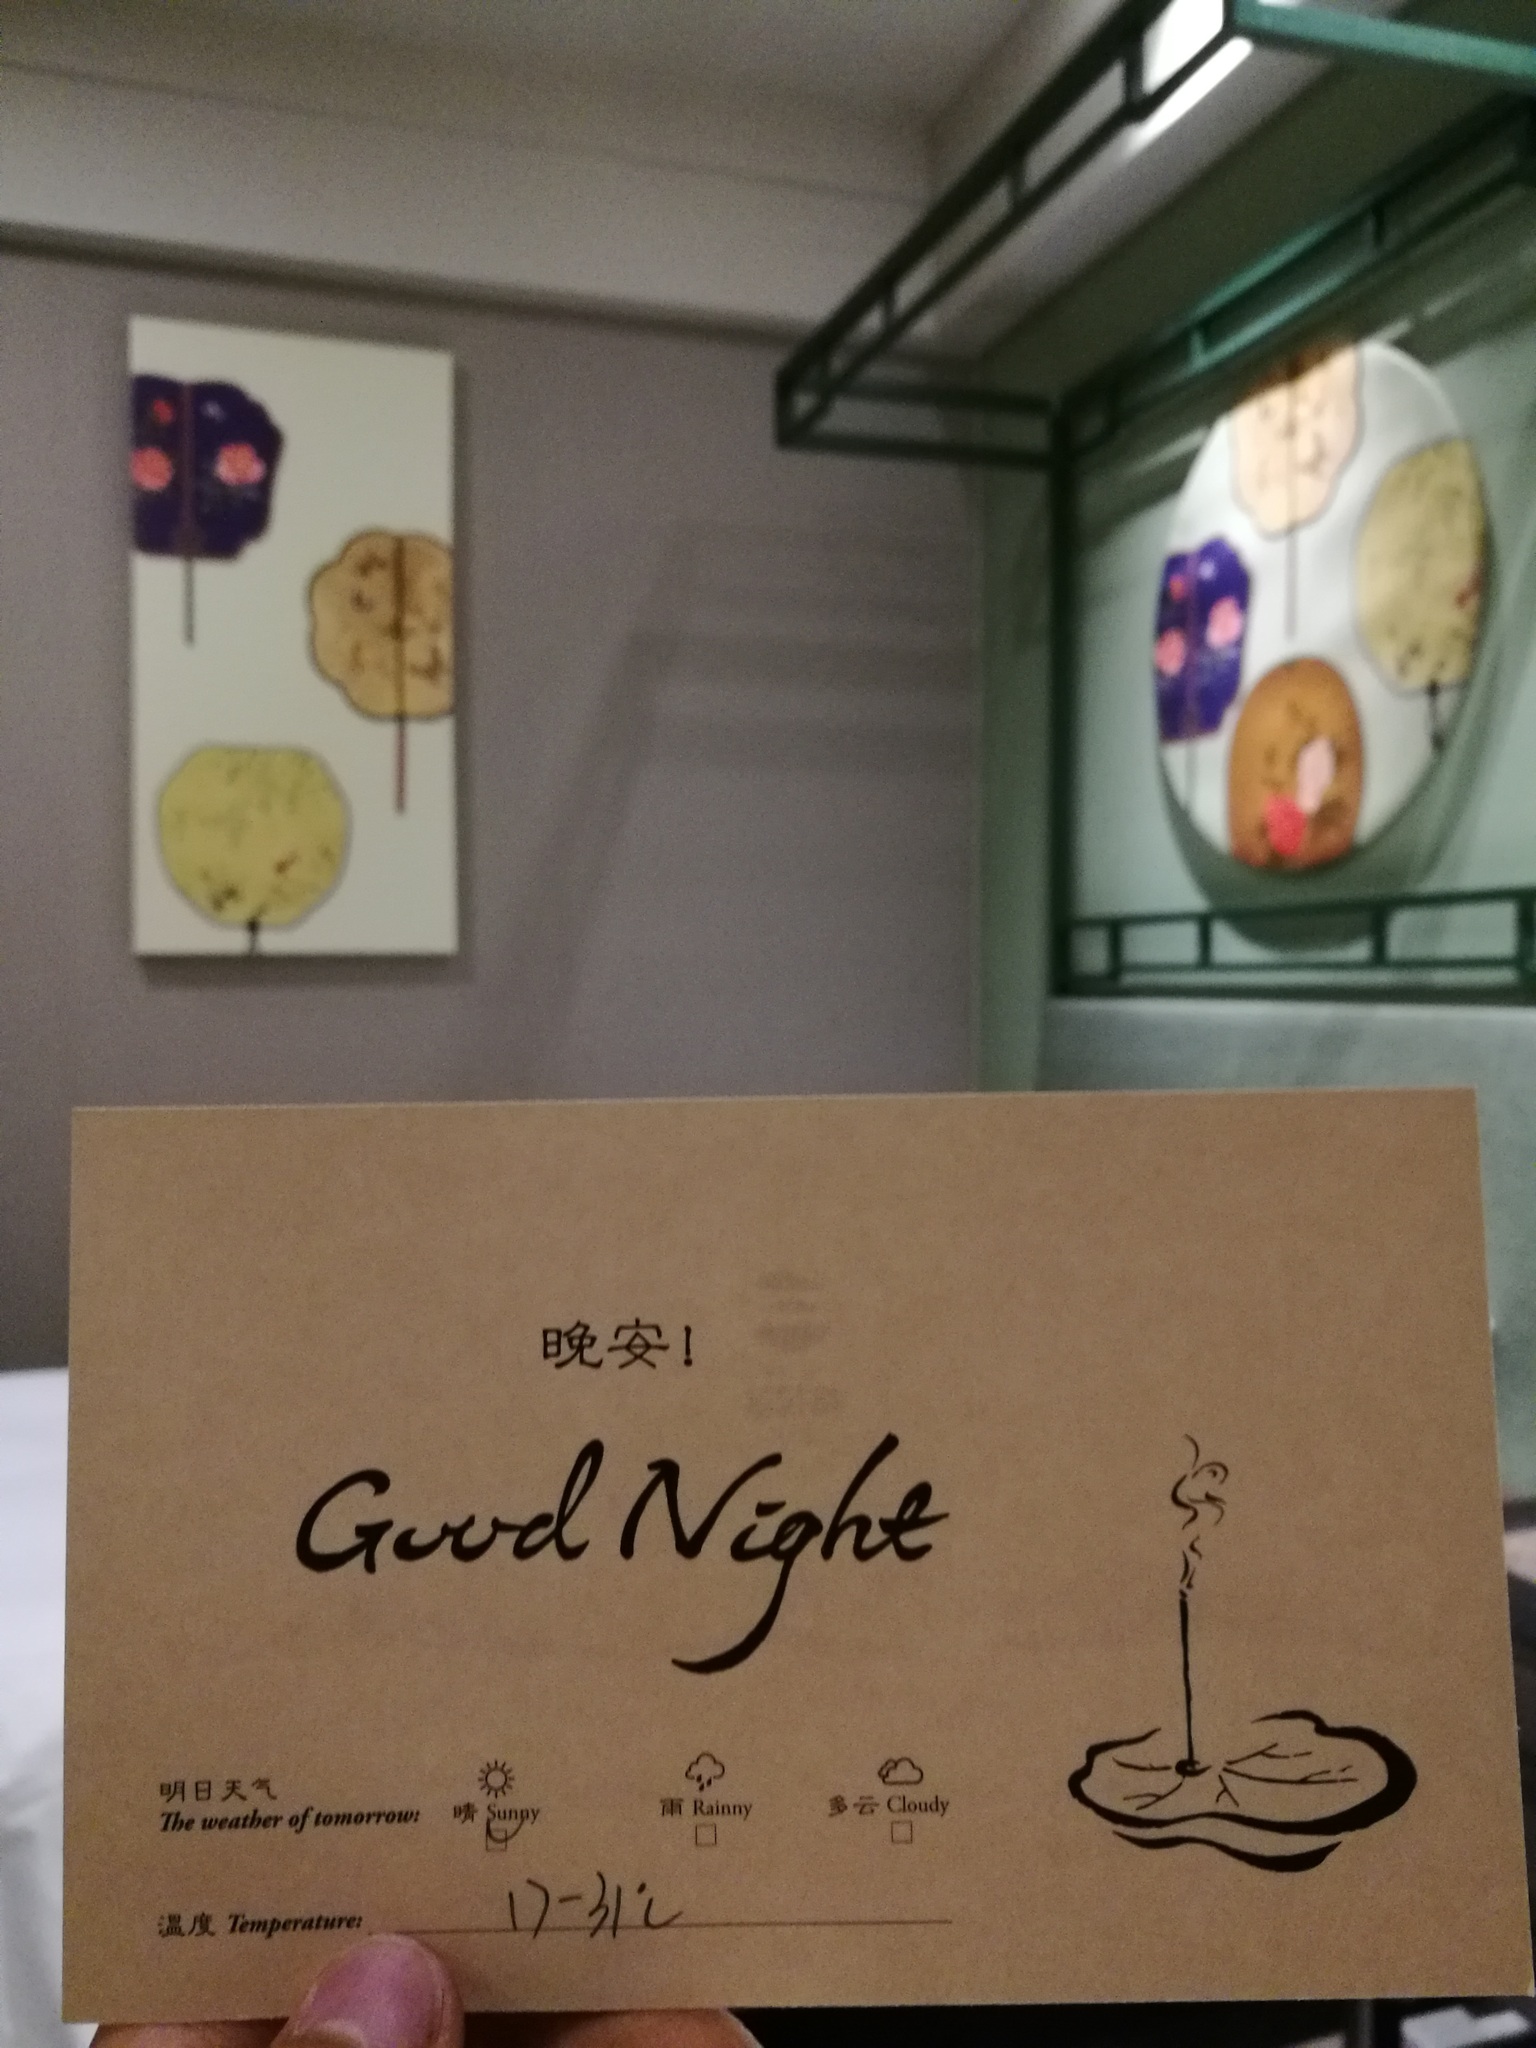 晚安!
Good Night
明日天气
The weather of tomorrow:
晴 Sunny
雨 Rainny
多云 Cloudy
温度 Temperature: 17-31℃